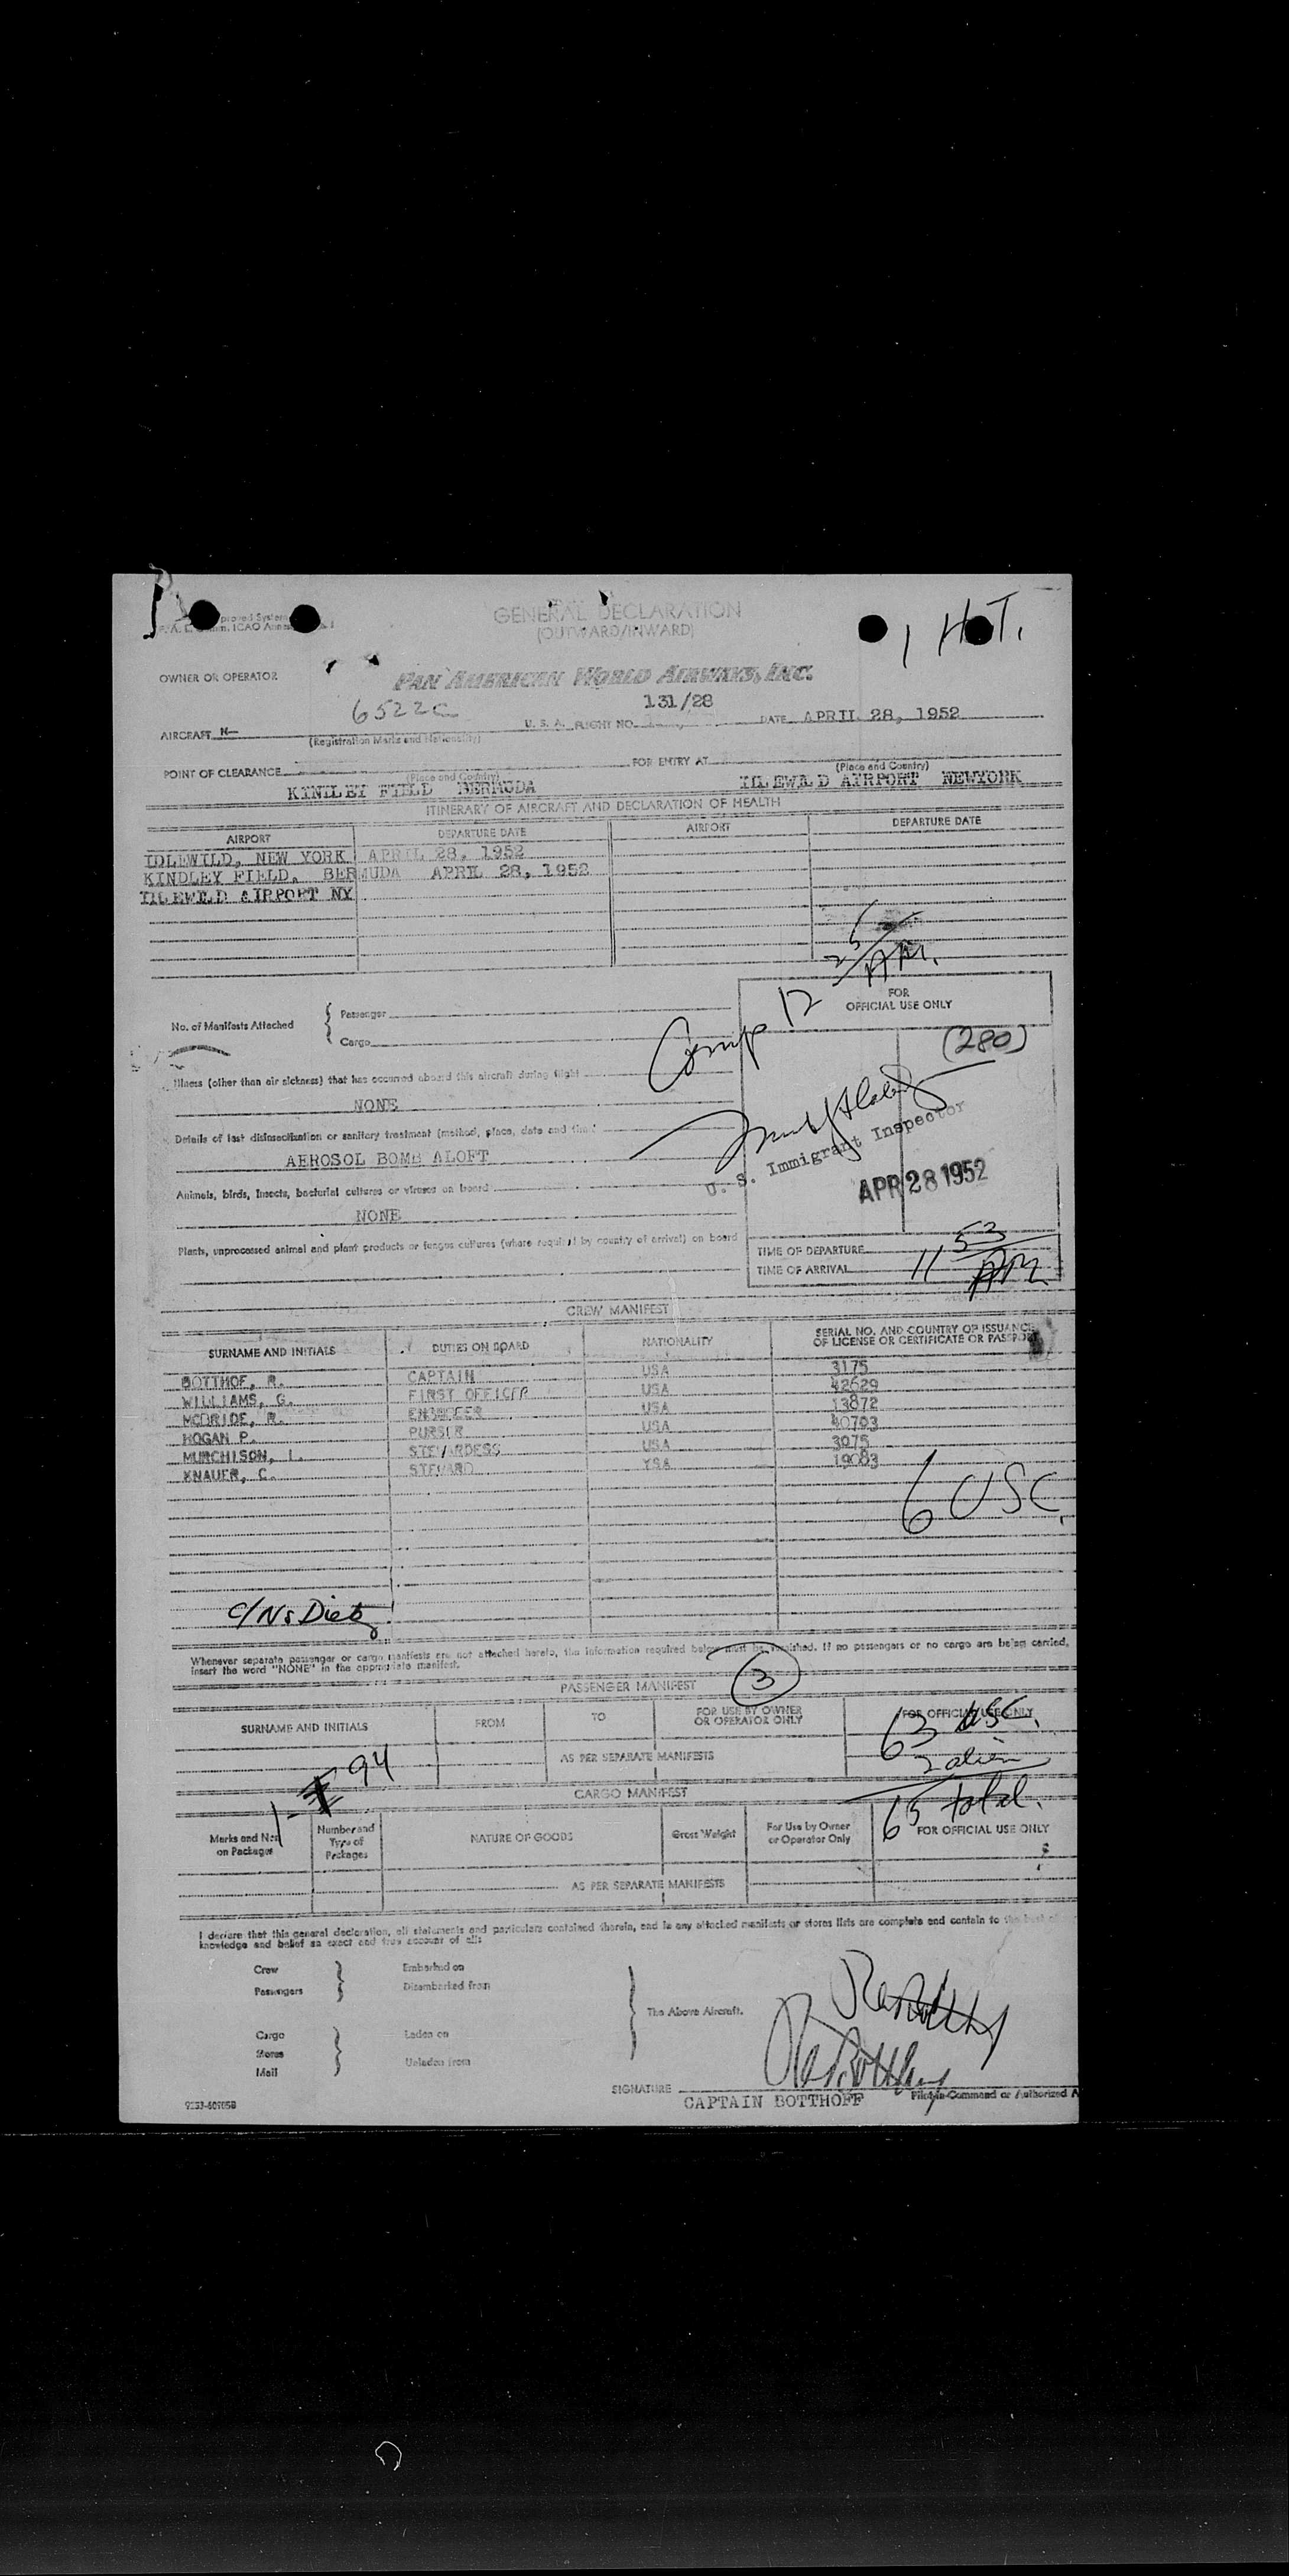 GENERAL DECLARATION
(OUTWARD/INWARD)
1 HOT.
OWNER OR OPERATOR
PAN AMERICAN WORLD AIRWAYS, INC.
6522C
131/28
AIRCRAFT N—
(Registration Marks and Nationality)
U. S. A. FLIGHT NO.
DATE APRIL 28, 1952
POINT OF CLEARANCE
(Place and Country)
FOR ENTRY AT
(Place and Country)
KINDLEY FIELD BERMUDA
IDLEWILD AIRPORT NEWYORK
ITINERARY OF AIRCRAFT AND DECLARATION OF HEALTH
AIRPORT DEPARTURE DATE AIRPORT DEPARTURE DATE
IDLEWILD, NEW YORK APRIL 28, 1952
KINDLEY FIELD, BERMUDA APRIL 28, 1952
IDLEWILD AIRPORT NY
Comp 12 25 AM.
FOR
OFFICIAL USE ONLY
No. of Manifests Attached
Passenger
Cargo
(280)
Illness (other than air sickness) that has occurred aboard this aircraft during flight
NONE
Details of last disinsectization or sanitary treatment (method, place, date and time)
AEROSOL BOMB ALOFT
U. S. Immigrant Inspector
APR 28 1952
Animals, birds, insects, bacterial cultures or viruses on board
NONE
Plants, unprocessed animal and plant products or fungus cultures (where required by country of arrival) on board
TIME OF DEPARTURE
TIME OF ARRIVAL 11 53 AM
CREW MANIFEST
SURNAME AND INITIALS DUTIES ON BOARD NATIONALITY SERIAL NO. AND COUNTRY OF ISSUANCE
OF LICENSE OR CERTIFICATE OR PASSPORT
BOTTHOF, R. CAPTAIN USA 3175
WILLIAMS, G. FIRST OFFICER USA 42629
MCBRIDE, R. ENGINEER USA 13872
HOGAN P. PURSER USA 40793
MURCHISON, L. STEWARDESS USA 3075
KNAUER, C. STEWARD YSA 19083
6 USC.
C/Ns Dietz
Whenever separate passenger or cargo manifests are not attached hereto, the information required below must be furnished. If no passengers or no cargo are being carried,
insert the word "NONE" in the appropriate manifest.
3
PASSENGER MANIFEST
SURNAME AND INITIALS FROM TO FOR USE BY OWNER
OR OPERATOR ONLY
FOR OFFICIAL USE ONLY
63 USC.
AS PER SEPARATE MANIFESTS
2 alien
1-I 94
65 total.
CARGO MANIFEST
Marks and Nos.
on Packages
Number and
Type of
Packages
NATURE OF GOODS
Gross Weight
For Use by Owner
or Operator Only
FOR OFFICIAL USE ONLY
AS PER SEPARATE MANIFESTS
I declare that this general declaration, all statements and particulars contained therein, and in any attached manifests or stores lists are complete and contain to the best of
knowledge and belief an exact and true account of all:
Crew
Passengers
Embarked on
Disembarked from
The Above Aircraft.
Cargo
Stores
Mail
Laden on
Unladen from
SIGNATURE
CAPTAIN BOTTHOFF
Pilot-in-Command or Authorized A